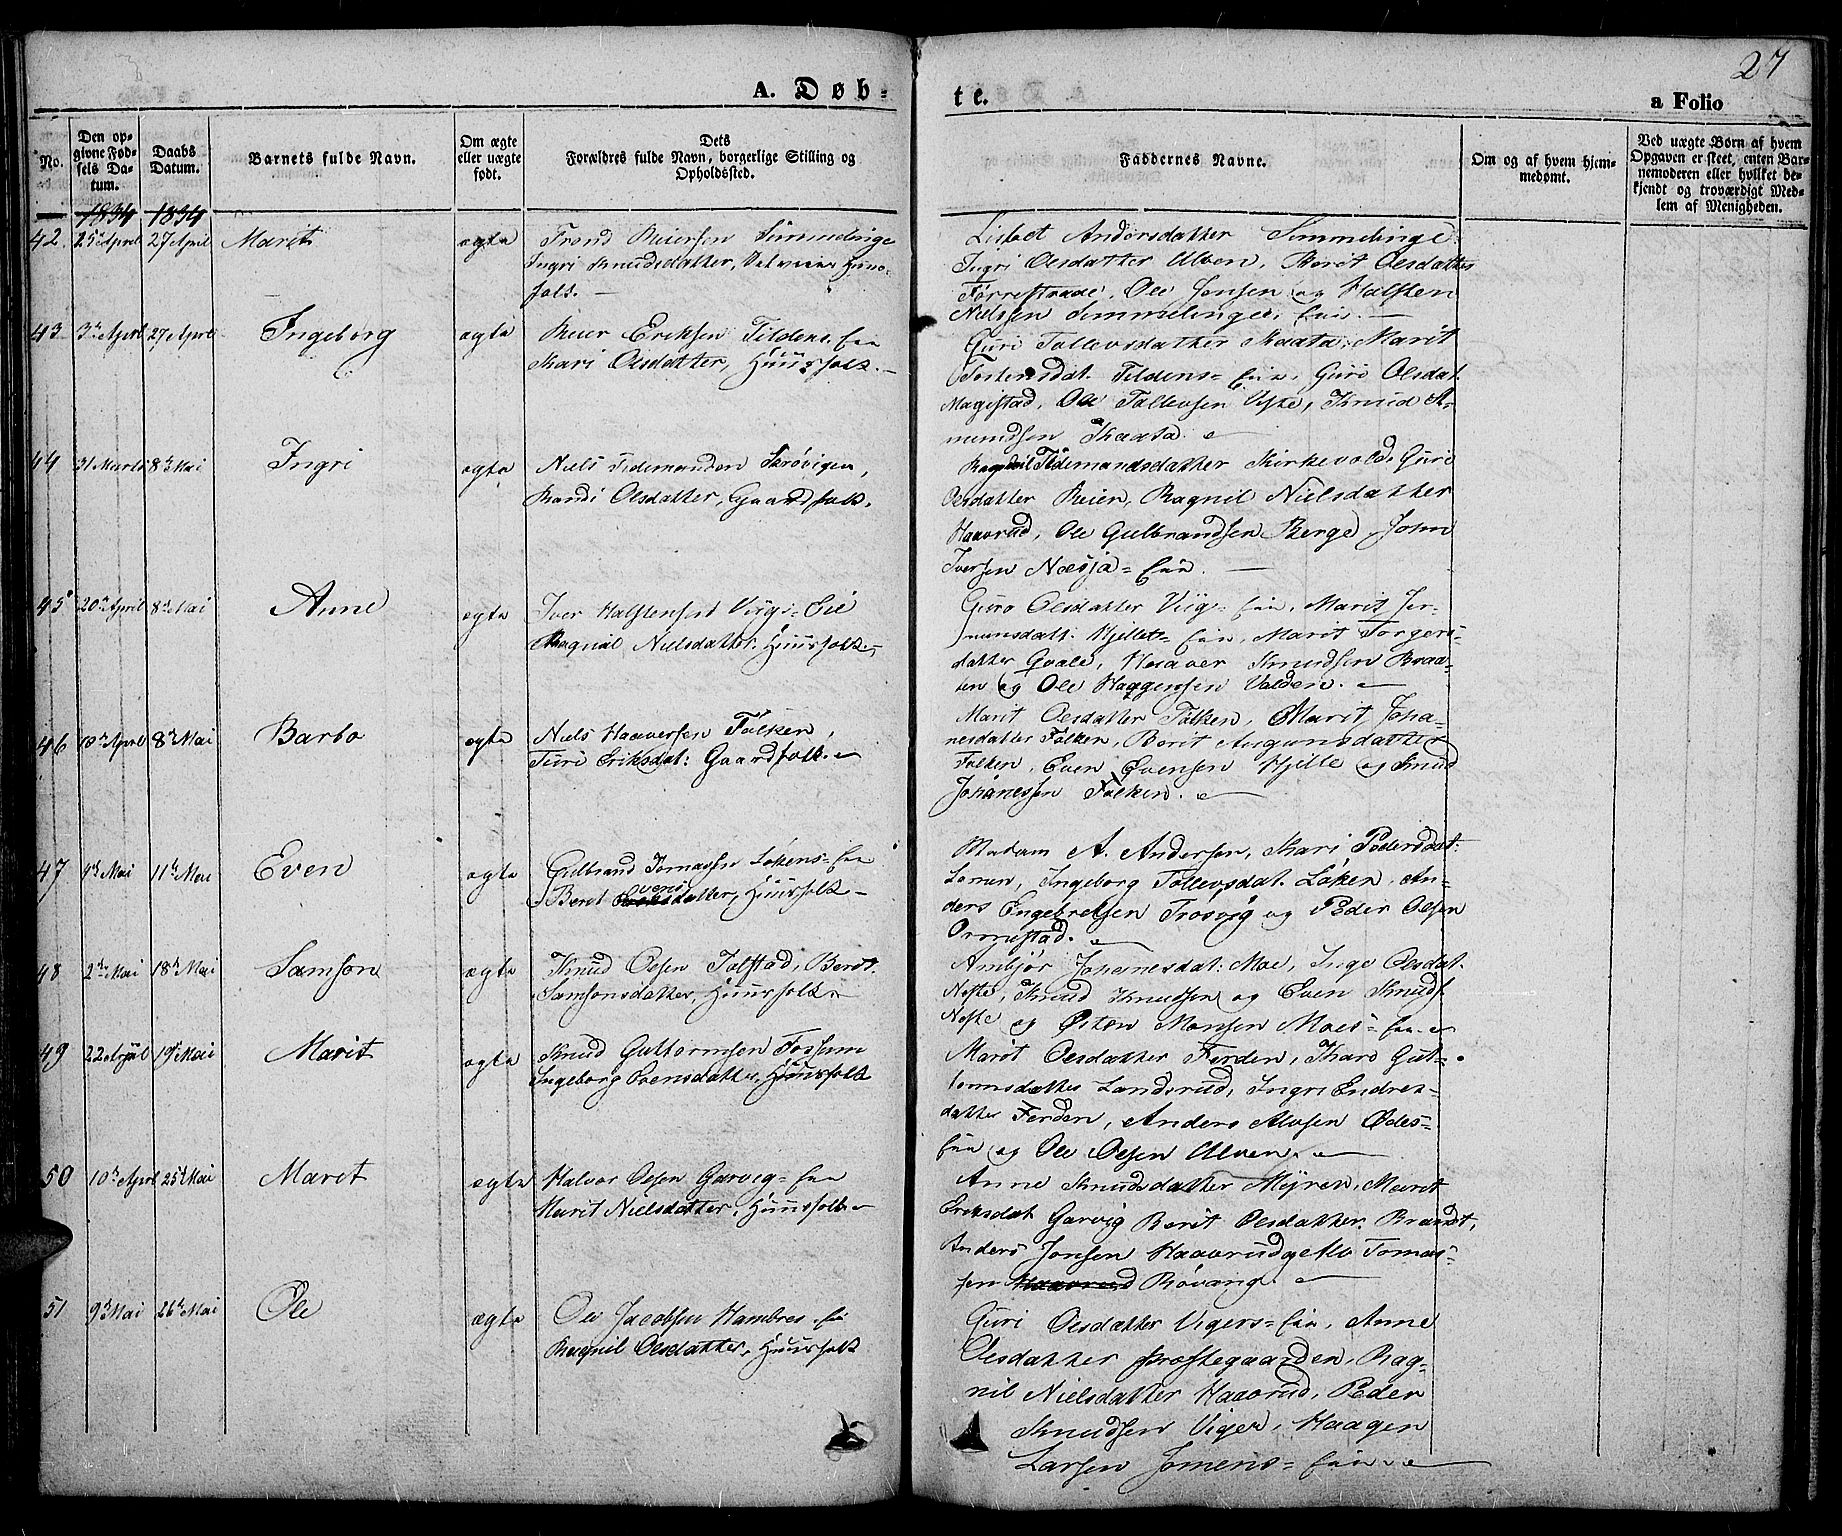 27
A. Døb-
te.
a Folio
No.
Den op-
givne Fød-
sels Da-
tum.
Daabs
Datum.
Barnets fulde Navn.
Om ægte
eller uægte
født.
Dets
Forældres fulde Navn, borgerlige Stilling og
Opholdssted.
Faddernes Navne.
Om og af hvem hjem-
medømt.
Ved uægte Børn af hvem
Opgaven er skeet, enten Bar-
nemoderen eller hvilket be-
kjendt og troværdigt Med-
lem af Menigheden.
1834 1834
42. 25 April 27 April Marit ægte Trond Reiersen Simmelinge
Ingri Knudsdatter, Huus-
folk. —
Lisbet Andersdatter Simmelinge
Ingri Olsdatter Ulven, Berit Olsdatter
Førrestraae, Ole Jonsen og Halsten
Nielsen Simmelinge. —
43 3de April 27 April Ingeborg ægte Reier Eriksen Tildens-
Mari Olsdatter, Huusfolk. —
Guri Tollevsdatter Skaata, Marit
Tostensdat. Tildens- Guro Olsdat.
Magistad, Ole Tollevsen Viste, Knud A-
mundsen Skaata.
44 31 Marts 8de Mai Ingri ægte Niels Tidemandsen Skrøvigen,
Randi Olsdatter, Gaardfolk.
Ragnil Tidemandsdatter Kirkevold, Guri
Olsdatter Reien, Ragnil Nielsdatter
Haavrud, Ole Gulbrandsen Berge, John
Iversen Næsja-
45 20de April 8de Mai Anne ægte Iver Halstensen Viigs-Eie
Ragnil Nielsdatter. Huusfolk. —
Guro Olsdatter Viigs- Marit Jer-
munsdatt: Hjellets- Marit Torgers-
datter Qvale, Haaver Knudsen Braa-
ten og Ole Haagensen Volden. —
46 10de April 8de Mai Barbo ægte Niels Haaversen Folken,
Turi Eriksdat: Gaardfolk. —
Marit Olsdatter Folken, Marit Joha-
nesdatter Folken, Berit Amgunsdatter
Folken, Even Evensen Hjelle og Knud
Johanessen Folken. —
47 9de Mai 11te Mai Even ægte Gulbrand Tomassen Løkens-
Berit Evens datter, Huusfolk —
Madam A. Andersen, Mari Pedersdat:
Lonen, Ingeborg Tollevsdat. Løken, An-
ders Engebretsen Trosvig og Peder Olsen
Ormestad. —
48 2de Mai 18de Mai Samson ægte Knud Olsen Tolstad, Berit
Samsonsdatter, Huusfolk —
Ambjør Johannesdat: Moe, Inge Olsdat.
Neste, Knud Knudsen og Even Knuds.
Neste og Østen Monsen Moes-
49 22 April 19de Mai Marit ægte Knud Guttormsen Fossum
Ingeborg Evensdatter, Huusfolk
Marit Olsdatter Ferden, Kari Gut-
tormsdatter Landsrud, Ingri Endres-
datter Ferden, Anders Alvsen Ødes-
og Ole Olsen Ulven. —
50 10de April 25de Mai Marit ægte Halvor Olsen Garvig-
Marit Nielsdatter, Huusfolk —
Anne Knudsdatter Myren, Marit
Eriksdat Garvig Berit Olsdatter Brandt,
Anders Jonsen Haavrud Tomas-
sen Haavrud Røvang. —
51 9de Mai 26de Mai Ole ægte Ole Jacobsen Hambres-
Ragnil Olsdatter, Huusfolk
Guri Olsdatter Vigers- Anne
Olsdatter Præstegaarden, Rag-
nil Nielsdatter Haavrud, Peder
Knudsen Viger, Haagen
Larsen Jomens-